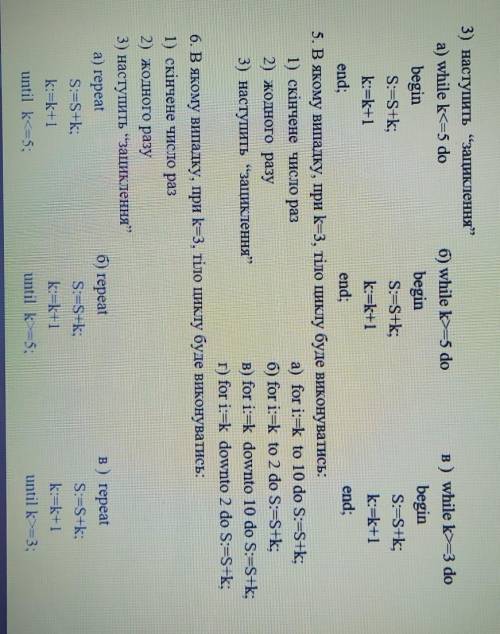 3) наступить “зациклення”
а) while k<=5 do б) while k>=5 do в ) while k>=3 do
begin begin begin
S:=S+k; S:=S+k; S:=S+k;
k:=k+1 k:=k+1 k:=k+1
end; end; end;
5. В якому випадку, при k=3, тіло циклу буде виконуватись:
1) скінчене число раз а) for i:=k to 10 do S:=S+k;
2) жодного разу б) for i:=k to 2 do S:=S+k;
3) наступить “зациклення” в) for i:=k downto 10 do S:=S+k;
г) for i:=k downto 2 do S:=S+k;
6. В якому випадку, при k=3, тіло циклу буде виконуватись:
1) скінчене число раз
2) жодного разу
3) наступить “зациклення”
а) repeat б) repeat в ) repeat
S:=S+k; S:=S+k; S:=S+k;
k:=k+1 k:=k+1 k:=k+1
until k<=5; until k>=5; until k>=3;